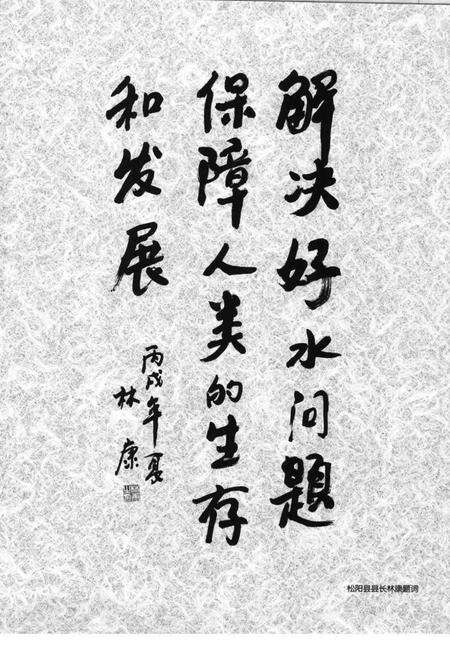 解决好水问题
保障人类的生存
和发展
丙戌年夏
林康
松阳县县长林康题词